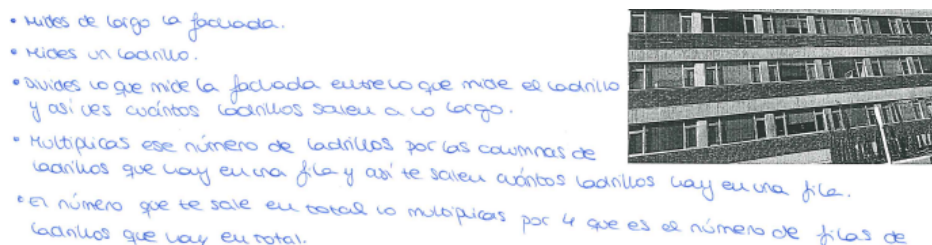 • Mides de largo la fachada.
• Mides un ladrillo.
• Divides lo que mide la fachada entre lo que mide el ladrillo
y así ves cuántos ladrillos salen a lo largo.
• Multiplicas ese número de ladrillos por las columnas de
ladrillos que hay en una fila y así te salen cuántos ladrillos hay en una fila.
• El número que te sale en total lo multiplicas por 4 que es el número de filas de
ladrillos que hay en total.